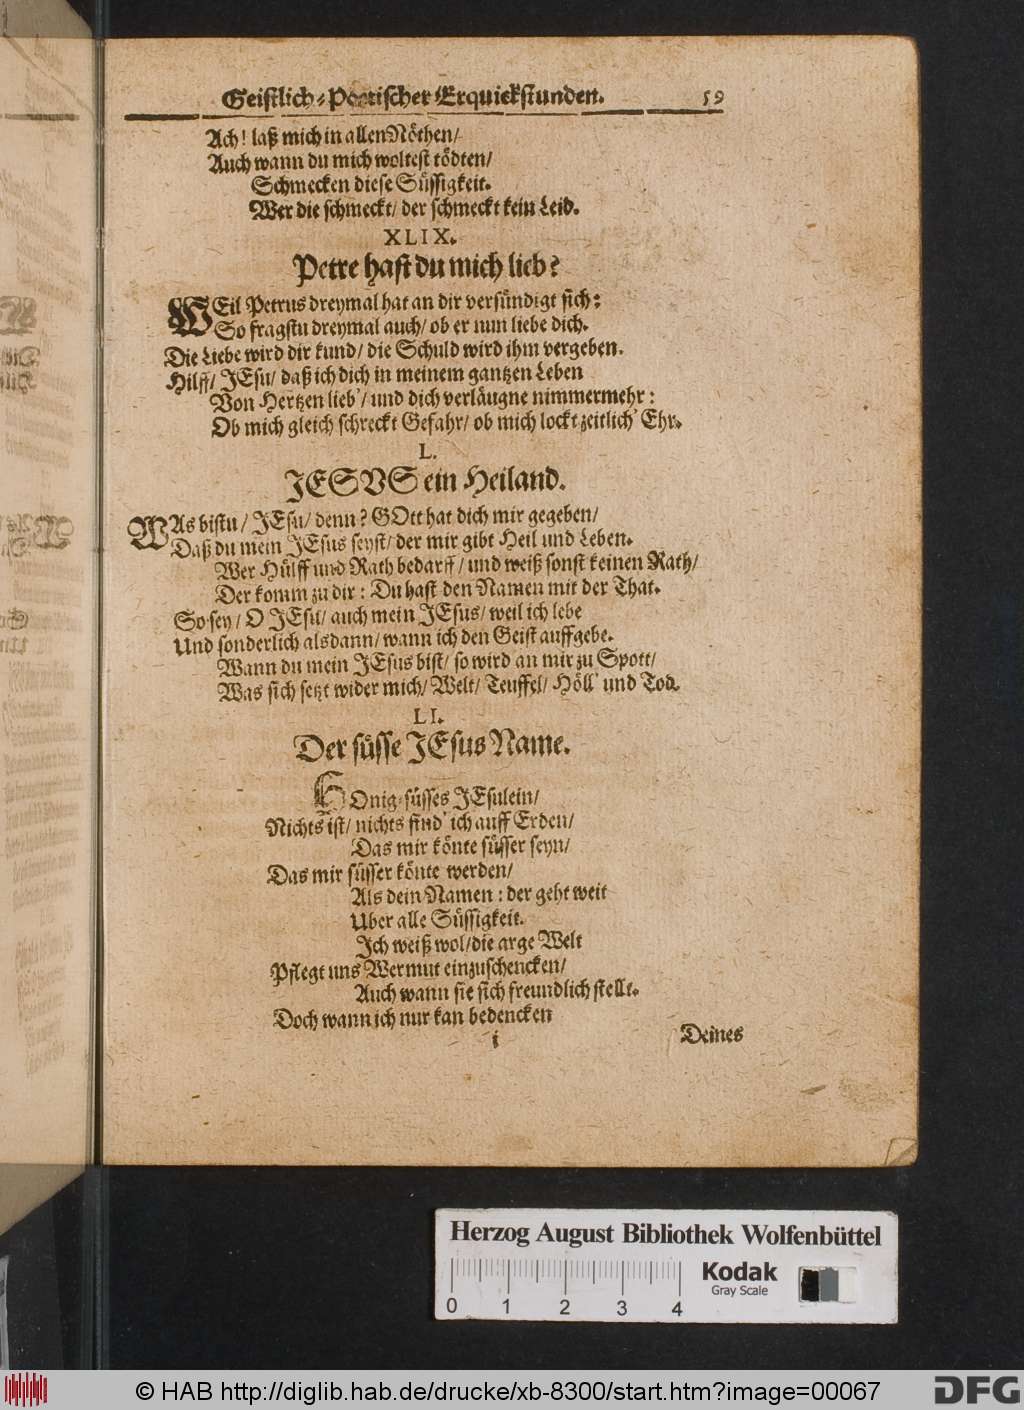 Geistlich-Poetischer Erquickstunden. 59
Ach! laß mich in allen Nöthen/
Auch wann du mich woltest tödten/
Schmecken diese Süssigkeit.
Wer die schmeckt/ der schmeckt kein Leid.
XLIX.
Petre hast du mich lieb?
WEil Petrus dreymal hat an dir versündigt sich:
So fragstu dreymal auch/ ob er nun liebe dich.
Die Liebe wird dir kund/ die Schuld wird ihm vergeben.
Hilff/ JEsu/ daß ich dich in meinem gantzen Leben
Von Hertzen lieb'/ und dich verläugne nimmermehr:
Ob mich gleich schreckt Gefahr/ ob mich lockt zeitlich' Ehr.
L.
JESUS ein Heiland.
WAs bistu/ JEsu/ denn? GOtt hat dich mir gegeben/
Daß du mein JEsus seyst/ der mir gibt Heil und Leben.
Wer Hülff und Rath bedarff/ und weiß sonst keinen Rath/
Der komm zu dir: Du hast den Namen mit der That.
So sey/ O JEsu/ auch mein JEsus/ weil ich lebe
Und sonderlich alsdann/ wann ich den Geist auffgebe.
Wann du mein JEsus bist/ so wird an mir zu Spott/
Was sich setzt wider mich/ Welt/ Teuffel/ Höll' und Tod.
LI.
Der süsse JEsus Name.
HOnig-süsses JEsulein/
Nichts ist/ nichts find' ich auff Erden/
Das mir könte süsser seyn/
Das mir süsser könte werden/
Als dein Namen: der geht weit
Uber alle Süssigkeit.
Ich weiß wol/ die arge Welt
Pflegt uns Wermut einzuschencken/
Auch wann sie sich freundlich stellt.
Doch wann ich nur kan bedencken
i Deines
Herzog August Bibliothek Wolfenbüttel
0 1 2 3 4
Kodak
Gray Scale
© HAB http://diglib.hab.de/drucke/xb-8300/start.htm?image=00067
DFG